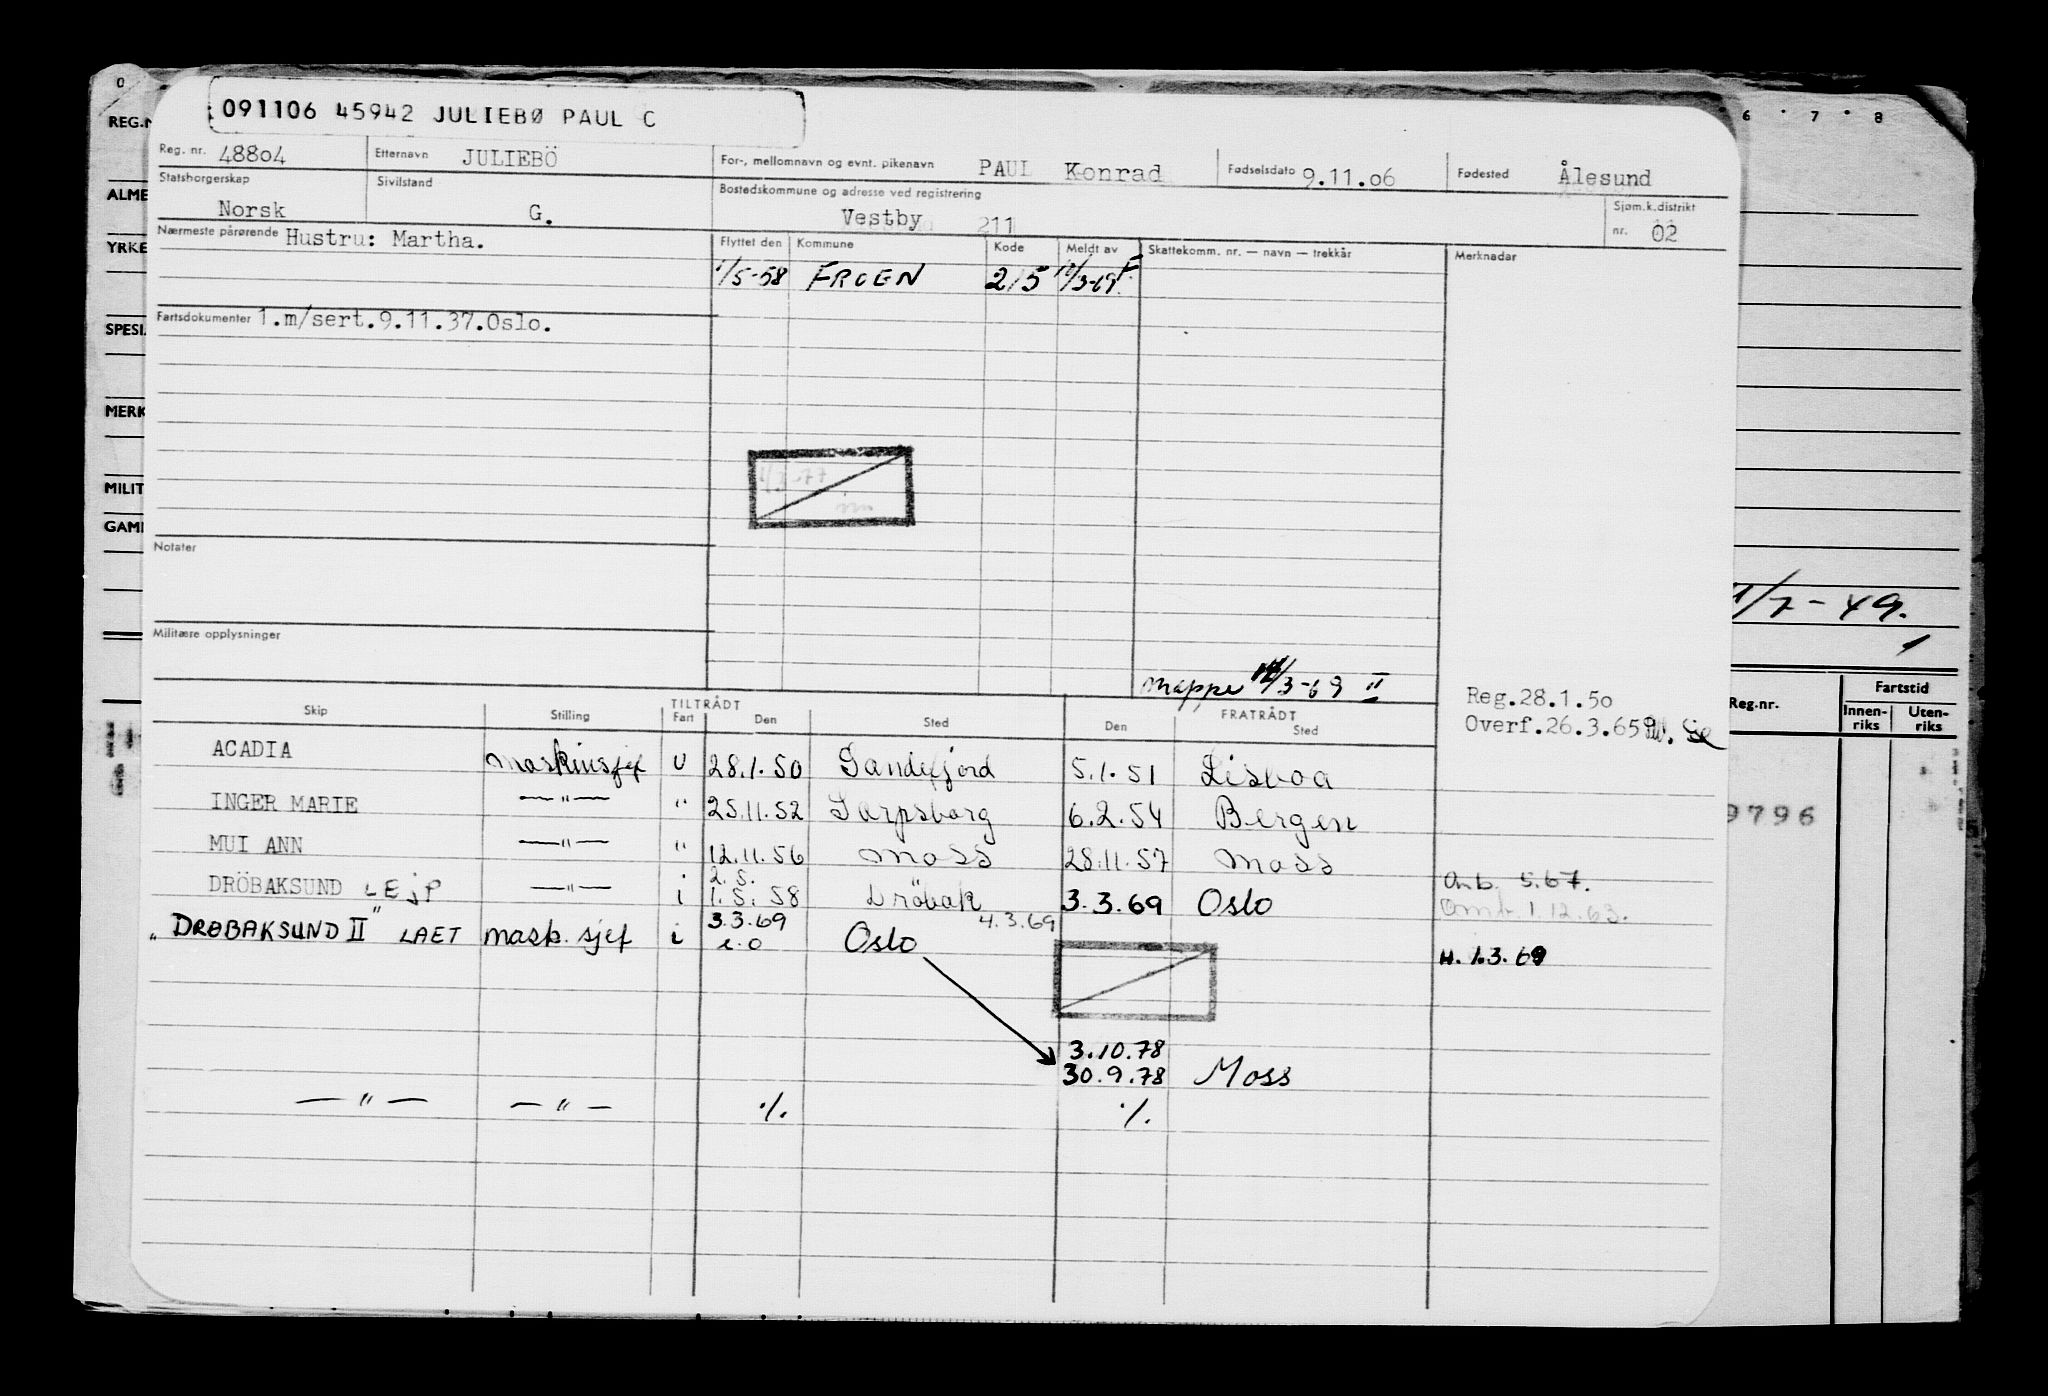 091106 45942 JULIEBØ PAUL C
Reg. nr. 48804 Etternavn JULIEBÖ For-, mellomnavn og evnt. pikenavn PAUL Konrad Fødselsdato 9.11.06 Fødested Ålesund
Statsborgerskap Norsk Sivilstand G. Bostedskommune og adresse ved registrering Vestby 211 Sjøm.k.distrikt nr. 02
Nærmeste pårørende Hustru: Martha. Flyttet den Kommune Kode Meldt av Skattekomm. nr. — navn — trekkår Merknader
1/5-58 FROEN 215
Fartsdokumenter 1.m/sert.9.11.37.Oslo.
Notater
Militære opplysninger
Mappe 14/3-69 II
Reg.28.1.50
Overf.26.3.65
Skip Stilling TILTRÅDT Fart Den Sted FRATRÅDT Den Sted
ACADIA Maskinsjef U 28.1.50 Sandefjord 5.1.51 Lisboa
INGER MARIE —"— " 25.11.52 Sarpsborg 6.2.54 Bergen
MUI ANN —"— " 12.11.56 Moss 28.11.57 Moss
2.5.
DRÖBAKSUND LEJP —"— i 1.5.58 Dröbak 3.3.69 Oslo
Anb. 5.67.
Omt. 1.12.63.
3.3.69 4.3.69
„DRØBAKSUND II" LAET mask.sjef i e.o Oslo
H. 1.3.69
3.10.78
30.9.78 Moss
—"— —"— ./. ./.
0
REG.N
ALME
YRKE
SPESI
MERK
MILIT
GAM
6 7 8
1/7-49.
Reg.nr. Fartstid
Innen-riks Uten-riks
9796